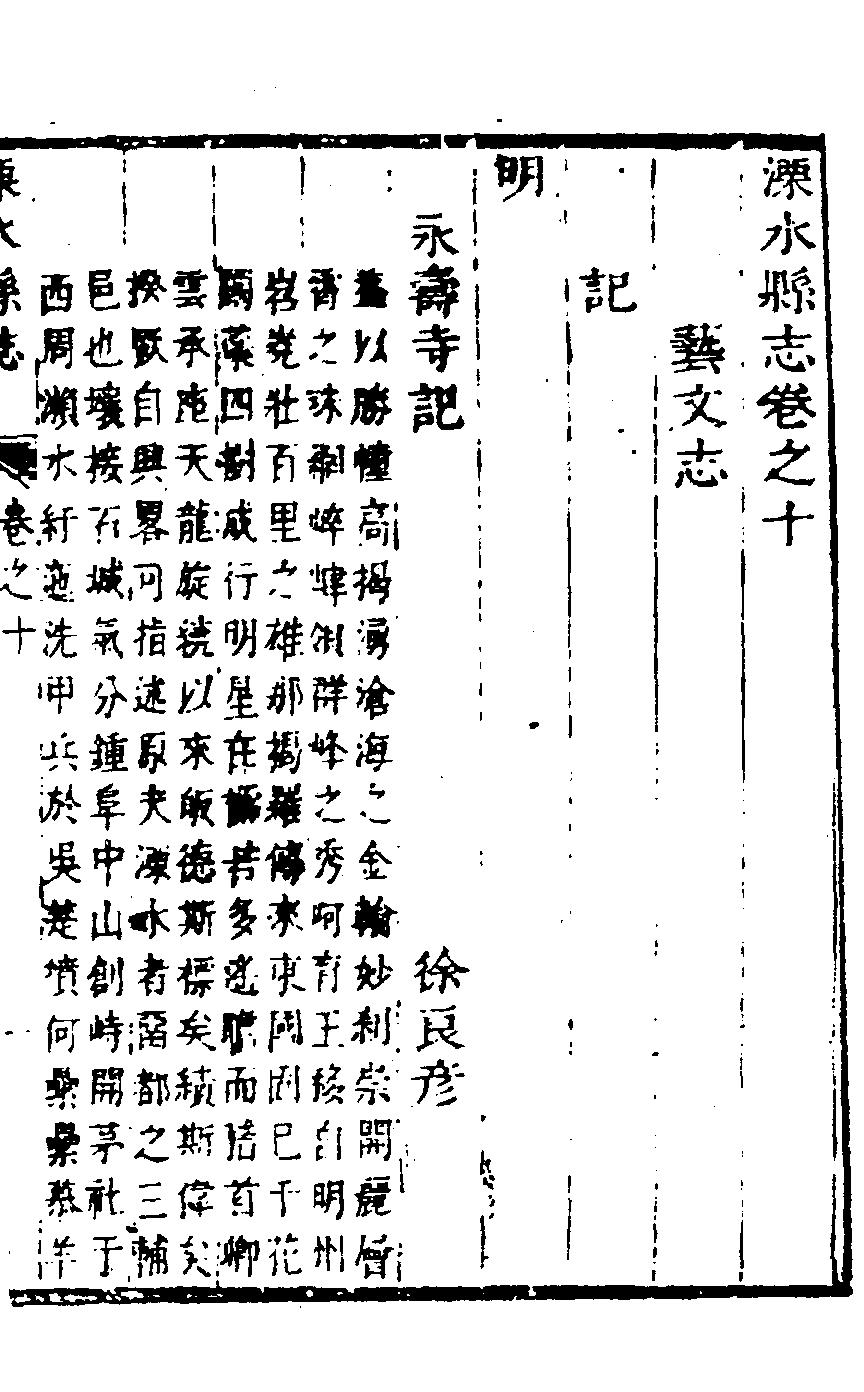 溧水縣志卷之十
藝文志
記
明
永壽寺記 徐良彥
蓋以勝幢高揭湧滄海之金輪妙利崇開麗層
霄之珠剎崒嵂倒群峰之秀呵育王移自明州
岧嶤壯百里之雄那揭羅傳來東國固已千花
獨蘂四樹成行明星在檐若多遙瞻而稽首卿
雲承陁天龍旋繞以來皈德斯標矣績斯偉矣
揆厥自興畧可指述原夫溧水者畱都之三輔
邑也壤接石城氣分鍾阜中山創峙開茅社于
西周瀨水紆迤洗甲兵於吳楚墳何纍纍慕羊
溧水縣志 卷之十